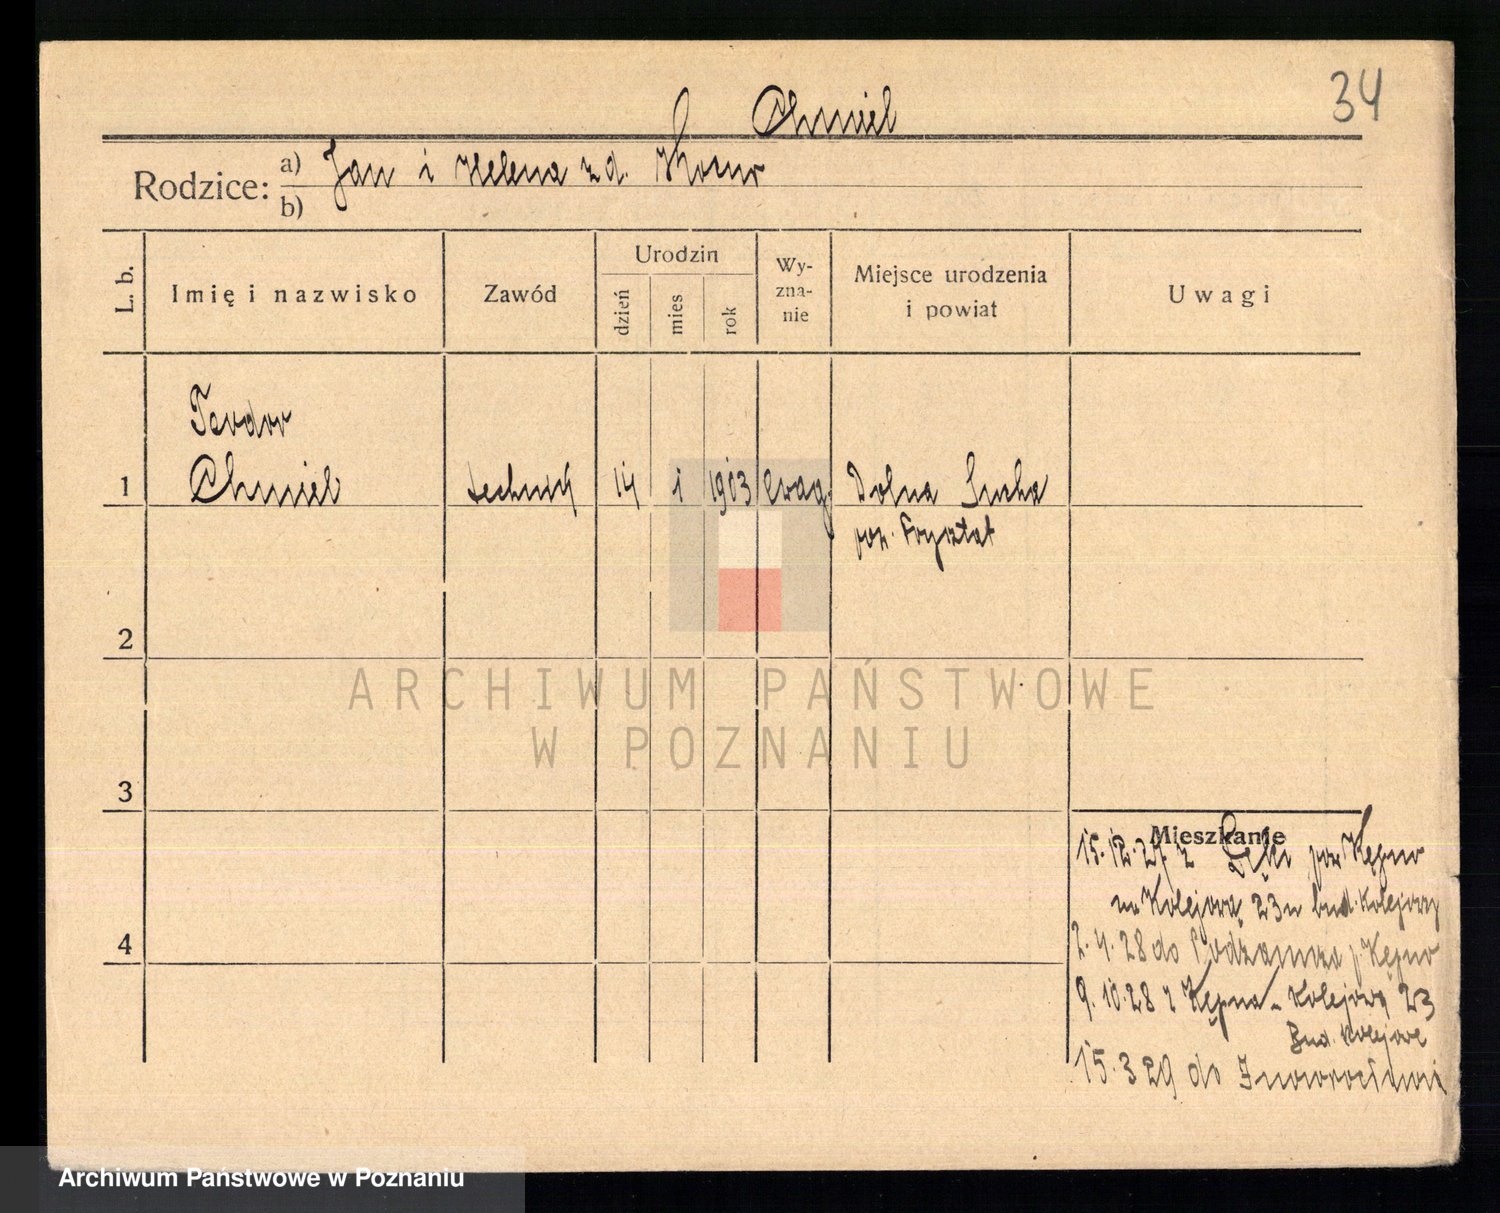 34
Chmiel
Rodzice: a) Jan i Helena zd.
b)
L. b.
Imię i nazwisko
Zawód
Urodzin
dzień
mies
rok
Wy-
zna-
nie
Miejsce urodzenia
i powiat
Uwagi
Teodor
1 Chmiel technik 14 1 1903 ewag. Dolna Sucha
pow. Frysztat
2
ARCHIWUM PAŃSTWOWE
W POZNANIU
3
Mieszkanie
15.12.27 z Łęki pow. Kępno
na Kolejową 23 w bud. kolejowy
4
2.4.28 do Podzamcza p. Kępno
9.10.28 z Kępna - Kolejowa 23
Bud. kolejowe
15.3 29 do
Archiwum Państwowe w Poznaniu